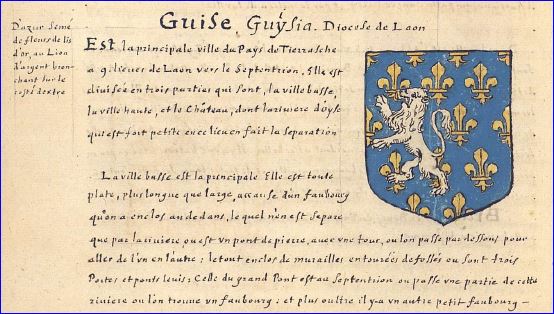 Guise, Guÿsia. Diocese de Laon
D'azur semé
de fleurs de lis
d'or, au Lion
d'argent bron-
chant sur le
costé dextre
Est la principale ville du Pays de Tierrasche
a 9 lieües de Laon vers le Septentrion. Elle est
divisée en trois parties qui sont, la ville basse,
la ville haute, et le Château, dont la riviere d'oyse
qui est fort petite en ce lieu en fait la separation
La ville basse est la principale Elle est toute
plate, plus longue que large, accause d'un faubourg
qu'on a enclos au dedans, le quel n'en est separé
que par la riviere ou est un pont de pierre, avec une tour, ou l'on passe par dessous pour
aller de l'un en l'autre; le tout enclos de murailles entourées de fossés ou sont trois
Portes et ponts levis: Celle du grand Pont est au Septentrion ou passe une partie de cette
riviere ou l'on trouve un faubourg: et plus oultre il y a un autre petit faubourg –